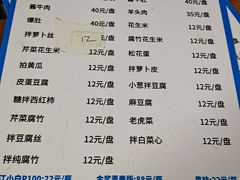 酱牛肉 40元/盘 酱牛肚
爆肚 40元/盘 羊头肉 35元/盘
拌萝卜丝 12 花生米 12元/盘
芹菜花生米 12元/盘 腐竹花生米 12元/盘
拍黄瓜 12元/盘 松花蛋 12元/盘
皮蛋豆腐 12元/盘 拌萝卜皮 12元/盘
糖拌西红柿 12元/盘 小葱拌豆腐 12元/盘
芹菜腐竹 12元/盘 麻豆腐 12元/盘
拌豆腐丝 12元/盘 老虎菜 12元/盘
拌纯腐竹 12元/盘 拌白菜心 12元/盘
江小白P100:22元/瓶